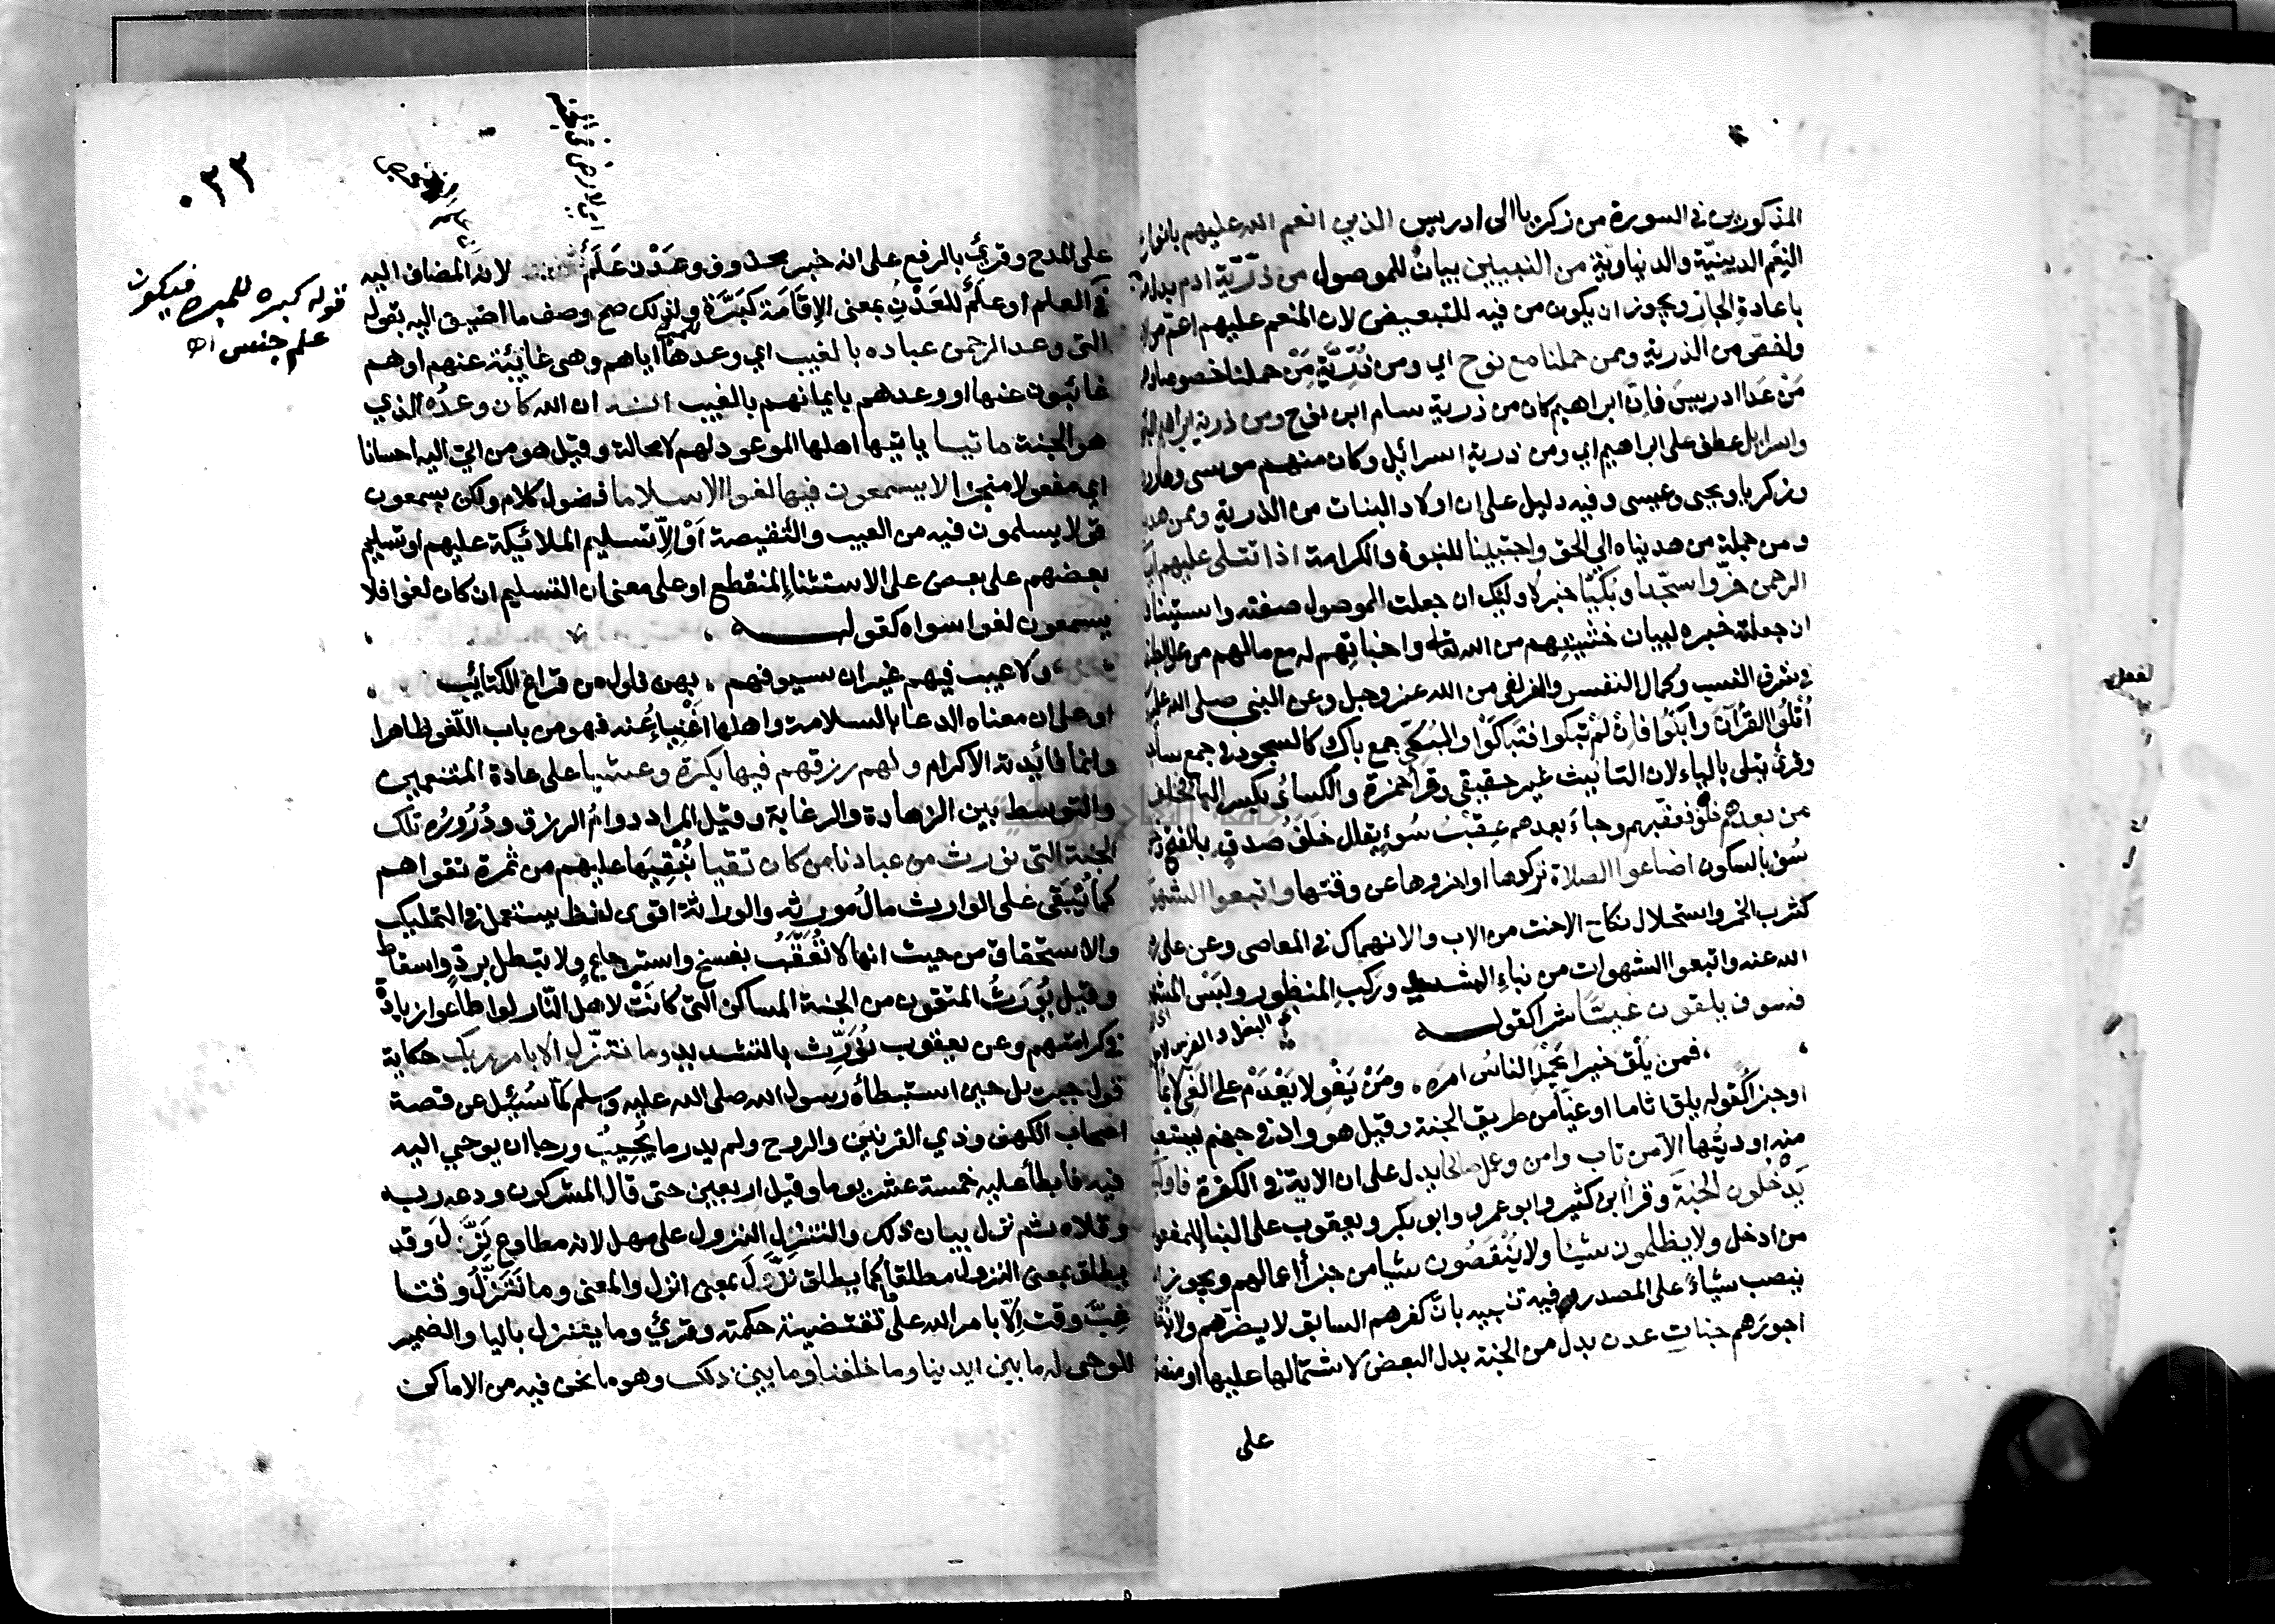 المذكورين في السورة من زكريا الى ادريس الذين انعم الله عليهم بانواع
النِّعَم الدينيّة والدنياوية من النبيين بيانٌ للموصول من ذرّيّة ادم بدل
باعادةِ الجارّ ويجوز ان يكون من فيه للتبعيض لان المنعم عليهم اعمّ من
ولخصّ من الذرية وممن حملنا مع نوح اي ومن ذُرِّيَّةِ مَنْ حملنا خصوصا
مَنْ عَدَا ادريسَ فإنَّ ابراهيم كان من ذرية سام ابن نوح ومن ذرية ابراهيم
واسرايل عطف على ابراهيم اي ومن ذرية اسرائيل وكان منهم موسى وهارون
وزكريا ويحيى وعيسى وفيه دليل على ان اولاد البنات من الذرية وممن هدينا
ومن جملة من هديناه الي الحق واجتبينا للنبوة والكرامة اذا تتلى عليهم
الرحمن خرّوا سجّدا وبكيّا خبر لاوليك ان جعلت الموصول صفته واستيناف
ان جعلته خبره لبيان خشيتهم من الله واخباتِهم له مع مالهم من علو
في شرف النسب وكمال النفس والزلفى من الله عز وجل وعن النبي صلى الله عليه
أُتْلُوا القرُآنَ وابْكُوا فإنْ لَمْ تبكوا فتَبَاكَوْا والبُكِيّ جمع باكٍ كالسجود في جمع ساجد
وقرئ يتلى بالياء لان التانيث غير حقيقي وقرأ حمزة والكسائي بكسر البا فخلف
من بعدهم خلف فعقبهم وجاءَ بعدهم عِقْبُ سُوْءٍ يقال خَلَفُ صِدقٍ بالفتح
سُوءٍ بالسكون اضاعوا الصلاة تركوها او اخروها عن وقتها واتبعوا الشهوات
كشرب الخمر واستحلال نكاح الاخت من الاب والانهماك في المعاصى وعن على
الله عنه واتبعوا الشهوات من بناءِ الشديد وركبِ المنظور ولبَسْ المشهور
فسوف يلقون غيّا شرا كقوله
فمن يَلْق خيرا يَحْمَدِ الناسُ امرَه ، ومَنْ يَغْوِ لا يَعْدَمْ على الغَيِّ لائما
او جزاءً كقوله يلق اثاما او غيّا من طريق الجنة وقيل هو واد في جهنم يستعيذ
منه اوديتُها الا من تاب وامن وعمل صالحا يدل على ان الاية في الكفرة فاوليك
يَدْخلون الجنةَ وقرأ ابن كثير وابو عمرو وابو بكر ويعقوب على البنا للمفعول
من ادخل ولا يظلمون شيئا ولا يُنْقَصُون شيا من جزاْ اعمالهم ويجوز ان
ينصب شيأ على المصدر وفيه تنبيه بانّ كفرهم السابق لا يضرّهم ولا ينقص
اجورَهم جناتِ عدن بدل من الجنة بدل البعض لاشتمالها عليها او منصوب
على
على المدح وقرئ بالرفع على انه خبر محذوف وعَدْن عَلَمٌ لانه المضاف اليه
في العلم او علَمٌ للعَدْنِ بمعنى الإِقَامَة كبَرَّةَ ولذلك صح وصف ما اضيف اليه بقوله
التى وعد الرحمن عباده بالغيب اي وعدها اياهم وهى غائبة عنهم او هم
غائبون عنها او وعدهم بايمانهم بالغيب انه ان الله كان وعدُه الذي
هو الجنة ماتيا ياتيها اهلها الموعود لهم لا محالة وقيل هو من اتى اليه احسانا
اي مفعولا منجزا لا يسمعون فيها لغوا الا سلاما فضول كلام ولكن يسمعون
قولا يسلمون فيه من العيب والنقيصة اَوْ الّا تسليم الملائيكة عليهم او تسليم
بعضهم على بعض على الاستثناءِ المنقطع او على معنى ان التسليم ان كان لغوا فلا
يسمعون لغوا سواه كقوله
ولا عيب فيهم غير ان سيوفهم ، بهن فلول من قراع الكتائب
او على ان معناه الدعاء بالسلامة واهلها اغنِياءُ عنه فهو من باب اللّغو ظاهرا
وانما فائيدته الاكرام ولهم رزقهم فيها بكرة وعشيا على عادة المتنعمين
والتوسط بين الزهادة والرغابة وقيل المراد دوامُ الرزق ودُرُورُه تلك
الجنة التى نورث من عبادنا من كان تقيا نُبْقِيَها عليهم من ثمرة تقواهم
كما يُبَقى على الوارث مالُ مورثه والوراثة اقوى لفظ يستعمل في التمليك
والاستحقاق من حيث انها لا تُعَقَّبُ بفسخٍ واسترجاعٍ ولا تبطل بردٍّ واسقاط
وقيل يُورَثُ المتقون من الجنة المساكن التى كانَتْ لاهل النّار لو اطاعوا زيادةً
في كرامتهم وعن يعقوب نُوَرِّث بالتشديد وما نتنزّل الا بامر ربك حكاية
قول جبريل حين استبطأه رسول الله صلى الله عليه وسلم لمّا سُئِل عن قصة
اصحاب الكهف وذي القرنين والروح ولم يدر ما يُجِيبُ ورجا ان يوحي اليه
فيه فأبطأ عليه خمسة عشر يوما وقيل اربعين حتى قال المشركون ودعه ربه
وقلاه ثم نزل ببيان ذلك والتنزل النزول على مهل لانه مطاوع نَزَّلَ وقد
يطلق بمعنى النزول مطلقا كما يطلق نَزَّلَ بمعنى انزل والمعنى وما نَتَنَزَّلُ وقتا
غِبَّ وقت اِلّا بامر الله على ما تقتضيه حكمته وقرئ وما يتنزل باليا والضمير
للوحى له ما بين ايدينا وما خلفنا وما بين ذلك وهو ما نحن فيه من الاماكن
٠٣٢
قوله كبره للمبره فيكون
علم جنس اه